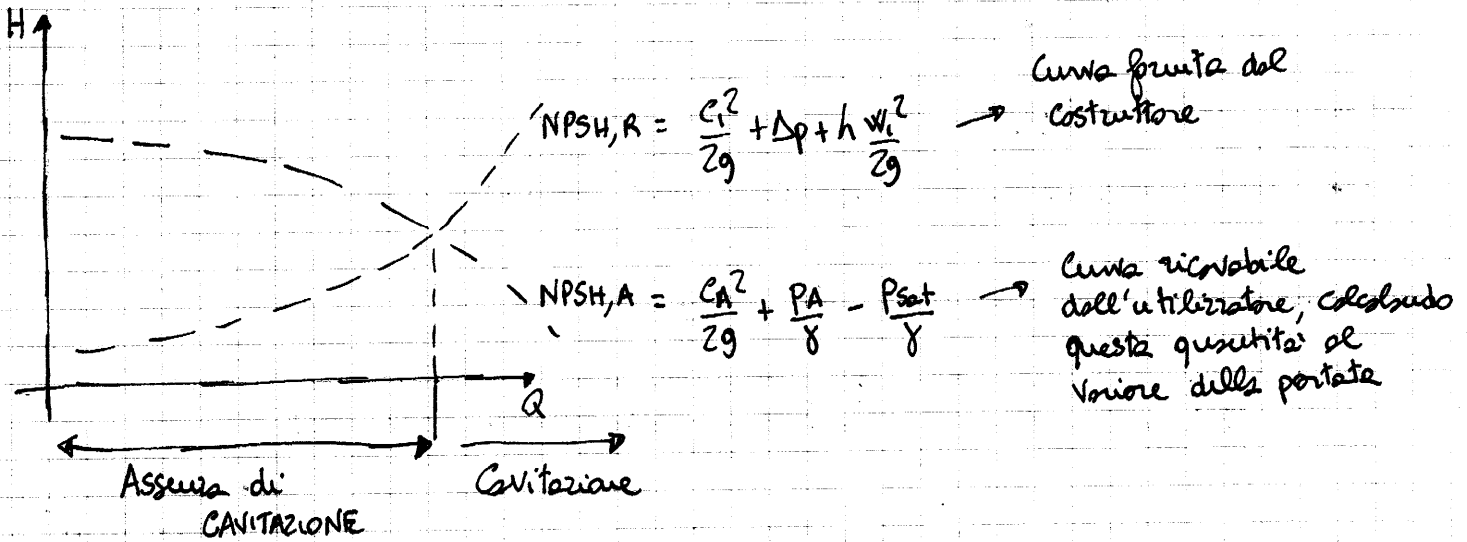 H
NPSH,R = c₁²/2g + Δp + h w₁²/2g → Curva fornita dal
costruttore
NPSH,A = c_A²/2g + p_A/γ - p_sat/γ → Curva ricavabile
dall'utilizzatore, calcolando
questa quantità al
variare della portata
Q
Assenza di
CAVITAZIONE
Cavitazione